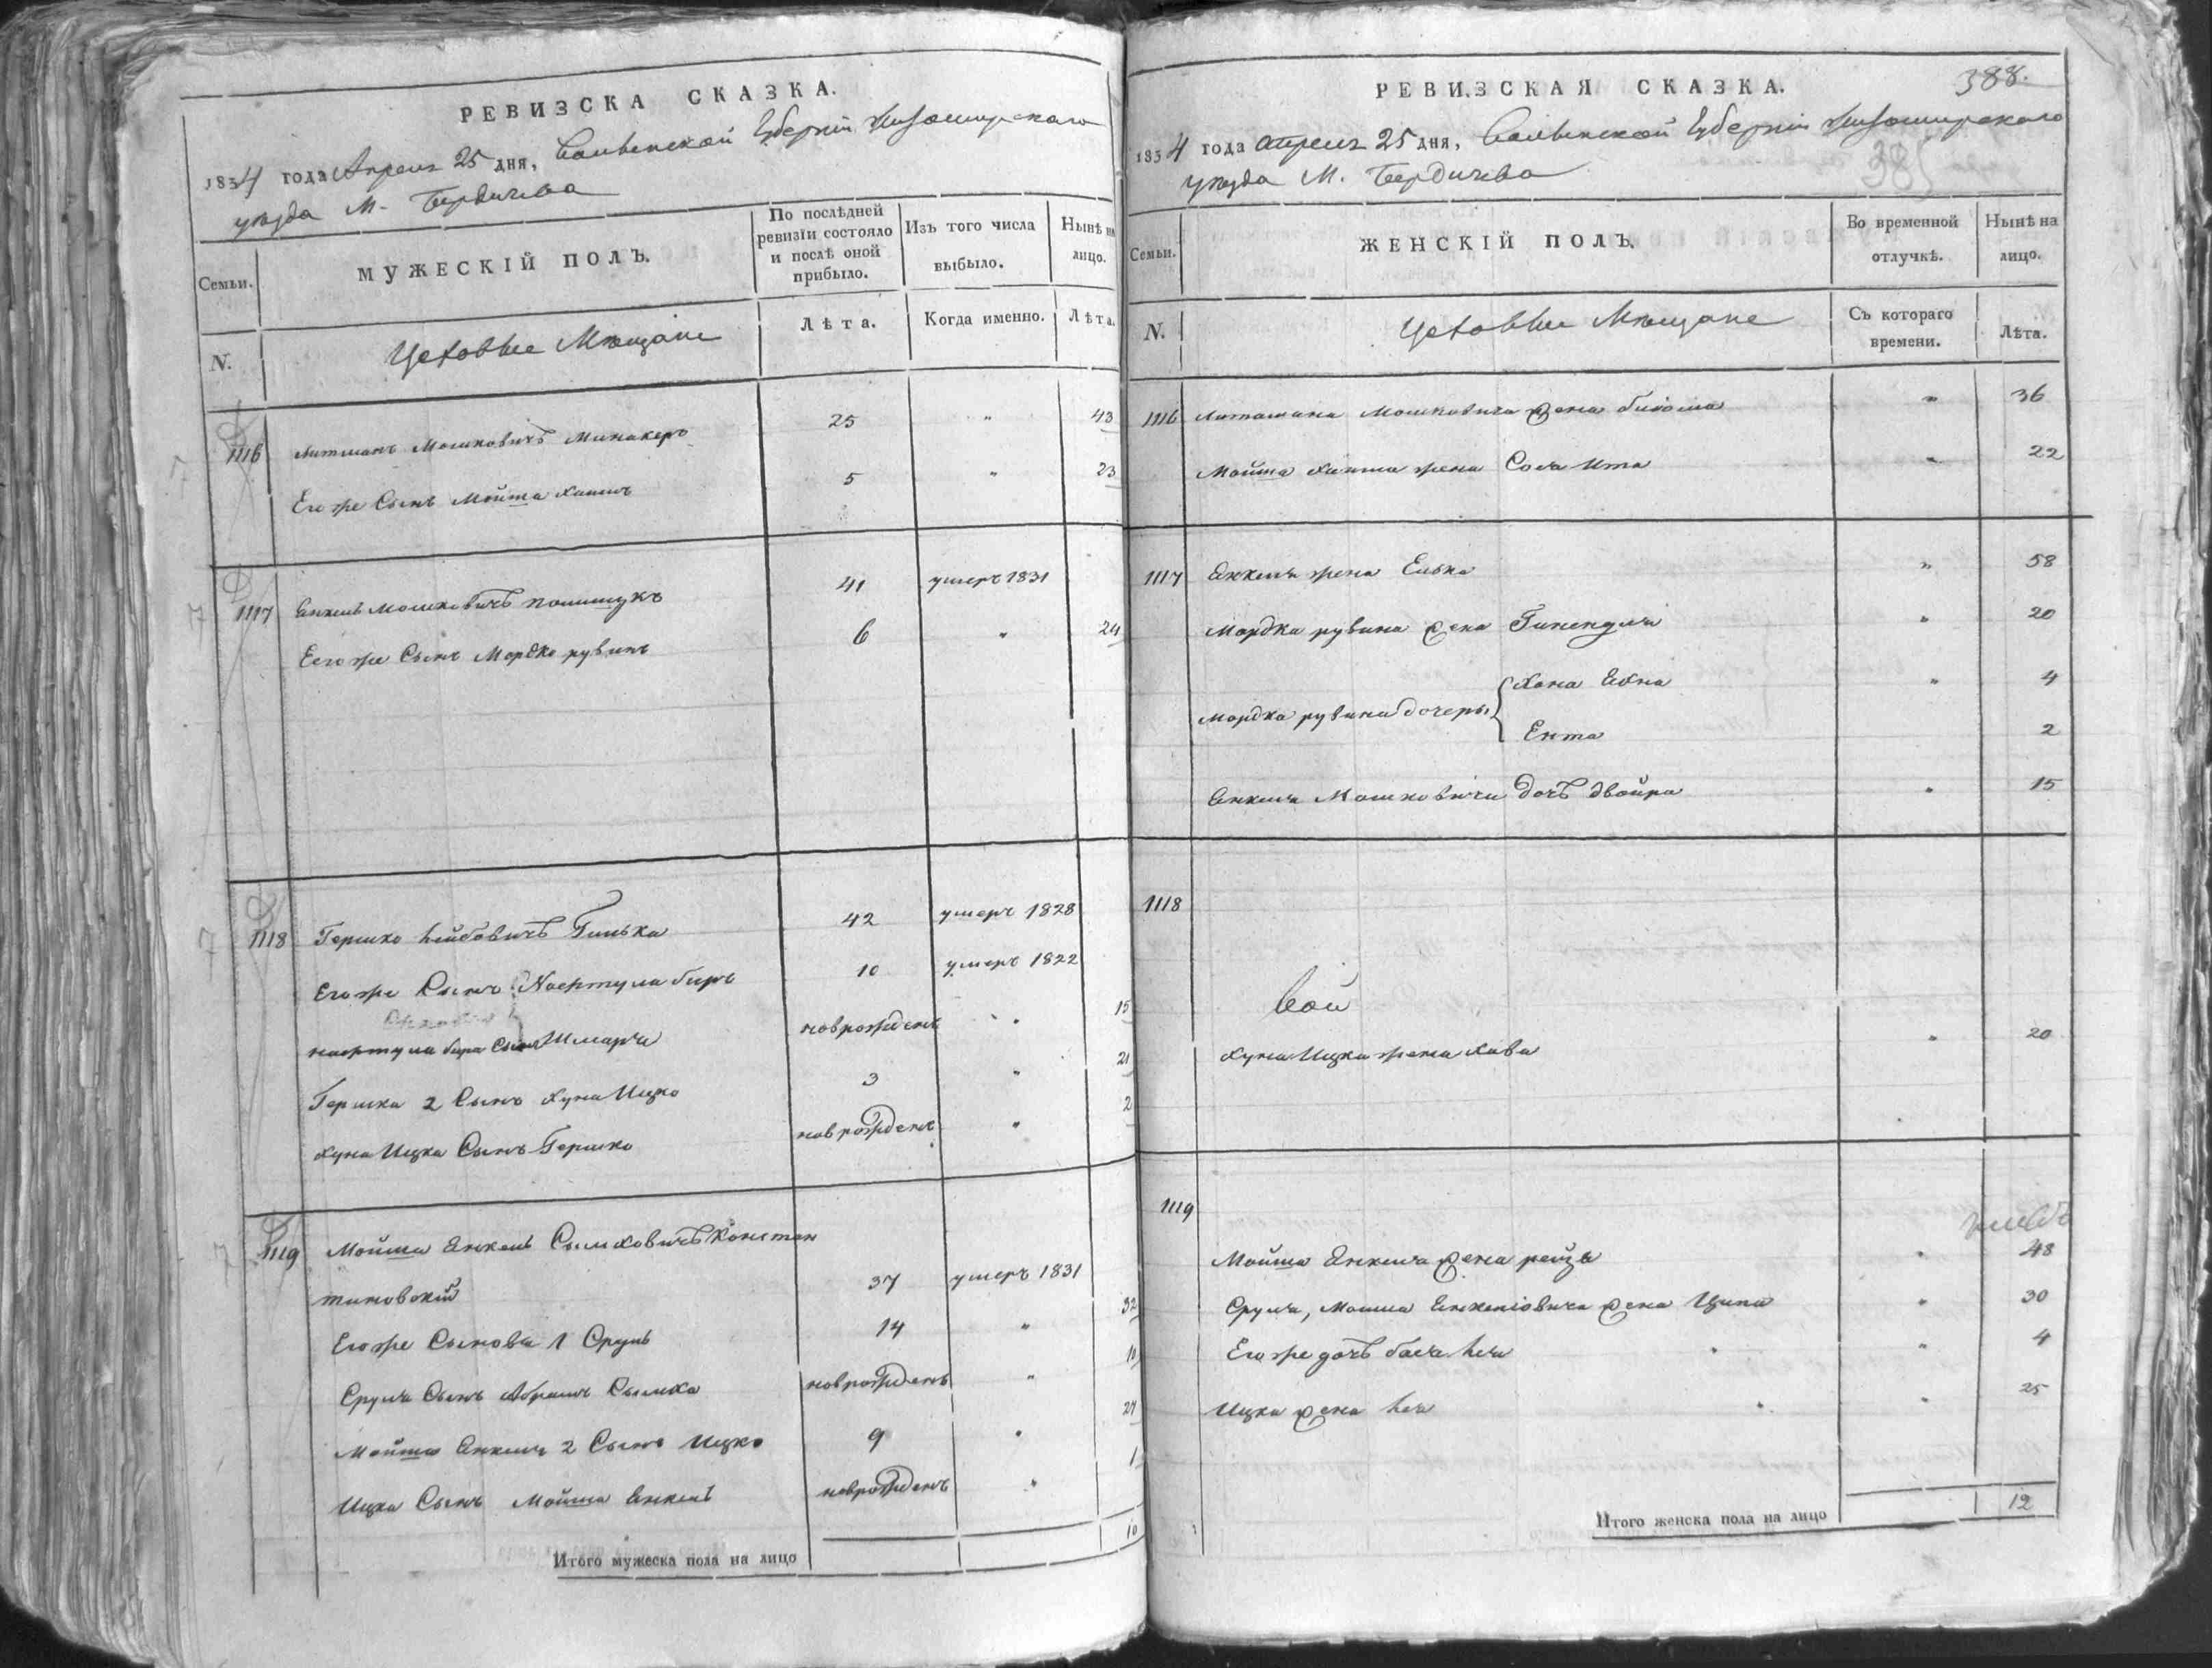 РЕВИЗСКА СКАЗКА.
1834 года Апреля 25 дня, Волынской Губерніи Житомирского
уезда М. Бердичева
Семьи.
МУЖЕСКІЙ ПОЛЪ.
По послѣдней ревизіи состояло и послѣ оной прибыло.
Изъ того числа выбыло.
Нынѣ на лицо.
N.
Цеховые Мещане
Лѣта.
Когда именно.
Лѣта.
1116 Литманъ Мошковичъ Минакеръ 25 " 43
Его же Сынъ Мойша 5 " 23
1117 Янкель Мошковичъ Полищукъ 41 умеръ 1831
Его же Сынъ Мордко рувинъ 6 " 24
1118 Гершко Лейбовичъ 42 умеръ 1828
Его же Сынъ Нафтула беръ 10 умеръ 1822
нафтула бера Сынъ Шмаря новрожденъ " 15
Гершка 2 Сынъ Хуна Ицко 3 " 21
Хуна Ицка Сынъ Гершко новрожденъ " 2
1119 Мойша Янкель Сымховичъ Констан
тиновскій 37 умеръ 1831
Его же Сыновья 1 Сруль 14 " 32
Сруля Сынъ Абрамъ Сымха новрожденъ "
Мойша Янкеля 2 Сынъ Ицко 9 " 27
Ицка Сынъ Мойша Янкель новрожденъ " 1
Итого мужеска пола на лицо 10
РЕВИЗСКАЯ СКАЗКА.
388.
1834 года апреля 25 дня, Волынской Губерніи Житомирского
385
уезда М. Бердичева
Семьи.
ЖЕНСКІЙ ПОЛЪ.
Во временной отлучкѣ.
Нынѣ на лицо.
N.
Цеховые Мещане
Съ котораго времени.
Лѣта.
1116 Литмана Мошковича жена " 36
Мойша жена Сося Ита " 22
1117 Янкеля жена Елька " 58
Мордка рувина жена " 20
Мордка рувина дочеры Хана " 4
Ента 2
Янкеля Мошковича дочъ двойра " 15
1118
Хуна Ицка жена Хава " 20
1119
Мойша Янкеля жена рейзя " 48
Сруля, Мошка жена Ципа " 30
Его же дочъ бася Лея " " 4
Ицка жена Лея " " 25
Итого женска пола на лицо 12